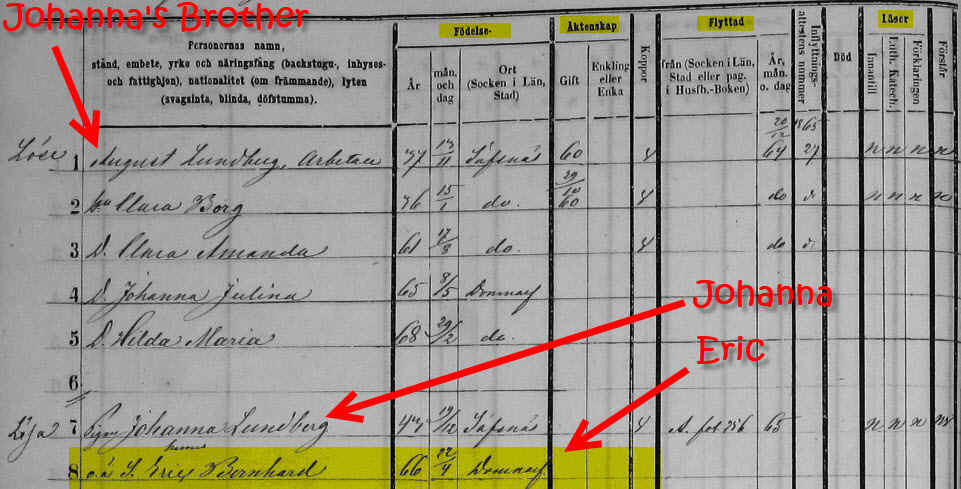 Johanna's Brother
Födelse-
Äktenskap
Flyttad
Läser
Personernas namn,
stånd, embete, yrke och näringsfång (backstugu-, inhyses-
och fattighjon), nationalitet (om främmande), lyten
(svagsinta, blinda, döfstumma).
År
mån. och dag
Ort (Socken i Län, Stad)
Gift
Enkling eller Enka
Koppor
från (Socken i Län, Stad eller pag. i Husfh.-Boken)
År, mån. o. dag
Inflyttnings-attestens nummer
Död
Innantill
Luth. Katech.
Förklaringen
Förstår
20/12 1865
1 August Lundberg, Arbetare 37 13/11 Säfsnäs 60 4 64 27 n n n n
2 Clara Borg 36 15/1 do. 29/10 60 4 do n n n n
3 D. Clara Amanda 61 17/3 do. 4 do
4 D. Johanna Julina 65 8/5 Domnarf
5 D. Hilda Maria 68 29/2 do.
6
Johanna
Eric
7 Pigan Johanna Lundberg 44 19/12 Säfsnäs 4 A. fol 756 65 n n n
8 oä S. Eric Bernhard 66 22/4 Domnarf